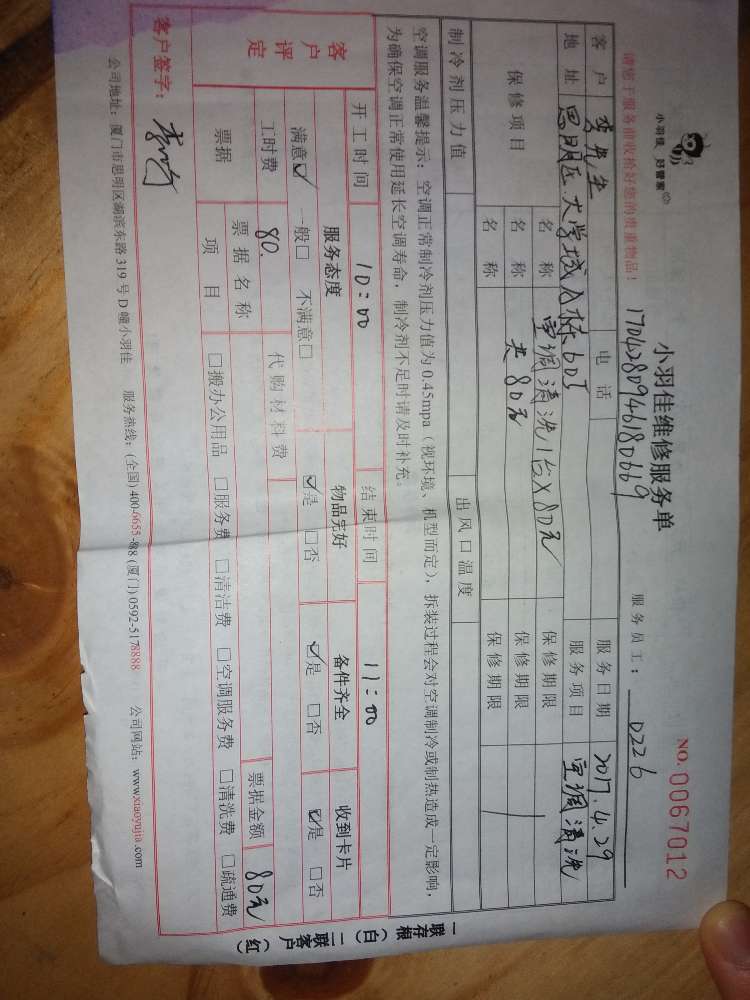 小羽佳 好管家
小羽佳维修服务单
NO. 0067012
请您于服务前收拾好您的贵重物品！
17042809401180669
服务员工： D226
客户 李先生 电话 服务日期 2017.4.29
地址 思明区大学城 栋605 服务项目 空调清洗
保修项目 名称 空调清洗1台X80元 保修期限
名称 共80元 保修期限
名称 保修期限
制冷剂压力值 出风口温度
空调服务温馨提示：空调正常制冷剂压力值为0.45mpa（视环境、机型而定），拆装过程会对空调制冷或制热造成一定影响，
为确保空调正常使用延长空调寿命，制冷剂不足时请及时补充。
开工时间 10:00 结束时间 11:00
客户评定 服务态度 物品完好 备件齐全 收到卡片
满意☑ 一般□ 不满意□ ☑是 □否 ☑是 □否 ☑是 □否
工时费 80. 代购材料费 票据金额 80元
票据 票据名称
项目 □搬办公用品 □服务费 □清洁费 □空调服务费 □清洗费 □疏通费
客户签字：
公司地址：厦门市思明区湖滨东路319号D幢小羽佳 服务热线：(全国)400-6655-888 (厦门)0592-5178888 公司网站：www.xiaoyujia.com
一联存根（白） 二联客户（红）